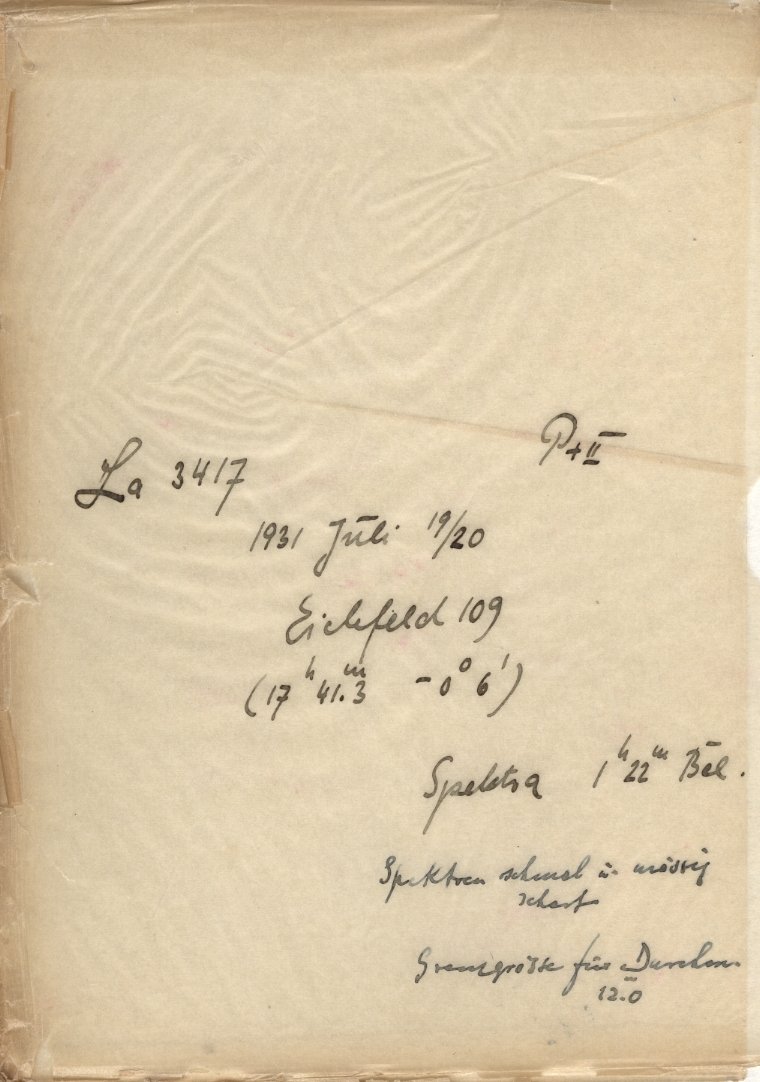 P+II
La 3417
1931 Juli 19/20
Eichfeld 109
(17h 41.m3 -0° 6')
Spektra 1h 22m Bel.
Spektren schmal u. mässig
scharf
Grenzgrösse für Durchm.
12.0